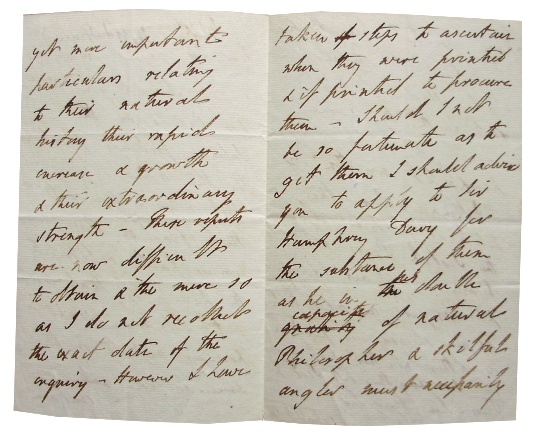 yet more important
particulars relating
to their natural
history their rapid
increase & growth
& their extraordinary
strength - These reports
are now difficult
to obtain & the more so
as I do not recollect
the exact date of the
enquiry - However I have
taken steps to ascertain
when they were printed
& if printed to procure
them - Should I not
be so fortunate as to
get them I should advise
you to apply to Sir
Humphrey Davy for
the substance of them
as he in the double
capacity of natural
Philosopher & skilful
angler must necessarily